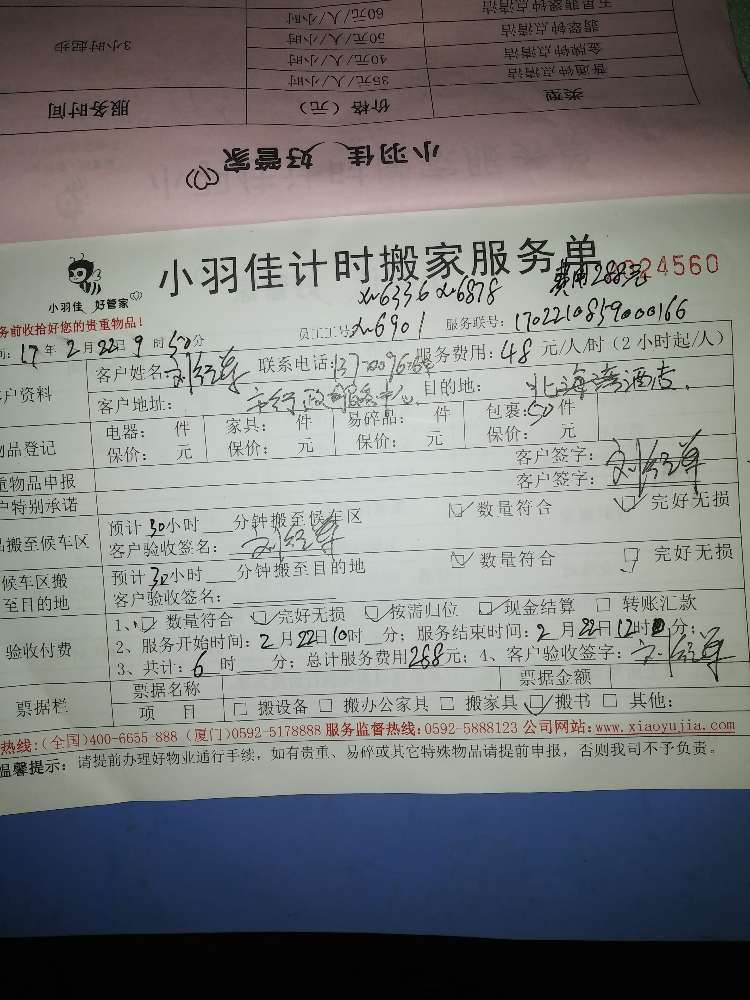 五星翡翠钟点清洁 60元/人/小时
翡翠钟点清洁 50元/人/小时
金牌钟点清洁 40元/人/小时
普通钟点清洁 35元/人/小时
3小时起步
类型 价格(元) 服务时间
小羽佳 好管家
小羽佳 好管家
小羽佳计时搬家服务单
费用288元
24560
xm6336 xm6878
务前收拾好您的贵重物品!
员工工号: xm6901 服务联号: 17022108590000166
间: 17年2月22日9时30分
户资料 客户姓名: 联系电话: 服务费用: 48元/人/时(2小时起/人)
客户地址: 市行政服务中心 目的地: 北海湾酒店
物品登记 电器: 件 家具: 件 易碎品: 件 包裹: 50件
保价: 元 保价: 元 保价: 元 保价: 元
重物品申报 客户签字:
户特别承诺 客户签字:
品搬至候车区 预计30小时 分钟搬至候车区 数量符合 完好无损
客户验收签名:
候车区搬至目的地 预计30小时 分钟搬至目的地 数量符合 完好无损
客户验收签名:
验收付费 1、 数量符合 完好无损 按需归位 现金结算 转账汇款
2、服务开始时间: 2月22日10时 分; 服务结束时间: 2月22日12时 分;
3、共计: 6时 分; 总计服务费用288元; 4、客户验收签字:
票据栏 票据名称 票据金额
项 目 搬设备 搬办公家具 搬家具 搬书 其他:
热线:(全国)400-6655 888 (厦门)0592-5178888 服务监督热线:0592-5888123 公司网站:www.xiaoyujia.com
温馨提示: 请提前办理好物业通行手续,如有贵重、易碎或其它特殊物品请提前申报,否则我司不予负责。